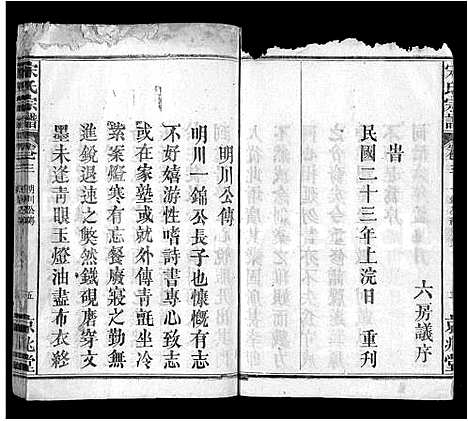 宋氏宗譜
六房議序
峕
民國二十三年上浣日 重刊
京兆堂
宋氏宗譜
卷三
明川公傳
五
京兆堂
明川公傳
明川一錦公長子也慷慨有志
不好嬉戲性嗜詩書專心致志
或在家塾或就外傳青氈坐冷
紫案燈寒有忘餐廢寢之勤無
進銳退速之獘然鐵硯磨穿文
墨未逢青眼玉燈油盡布衣終